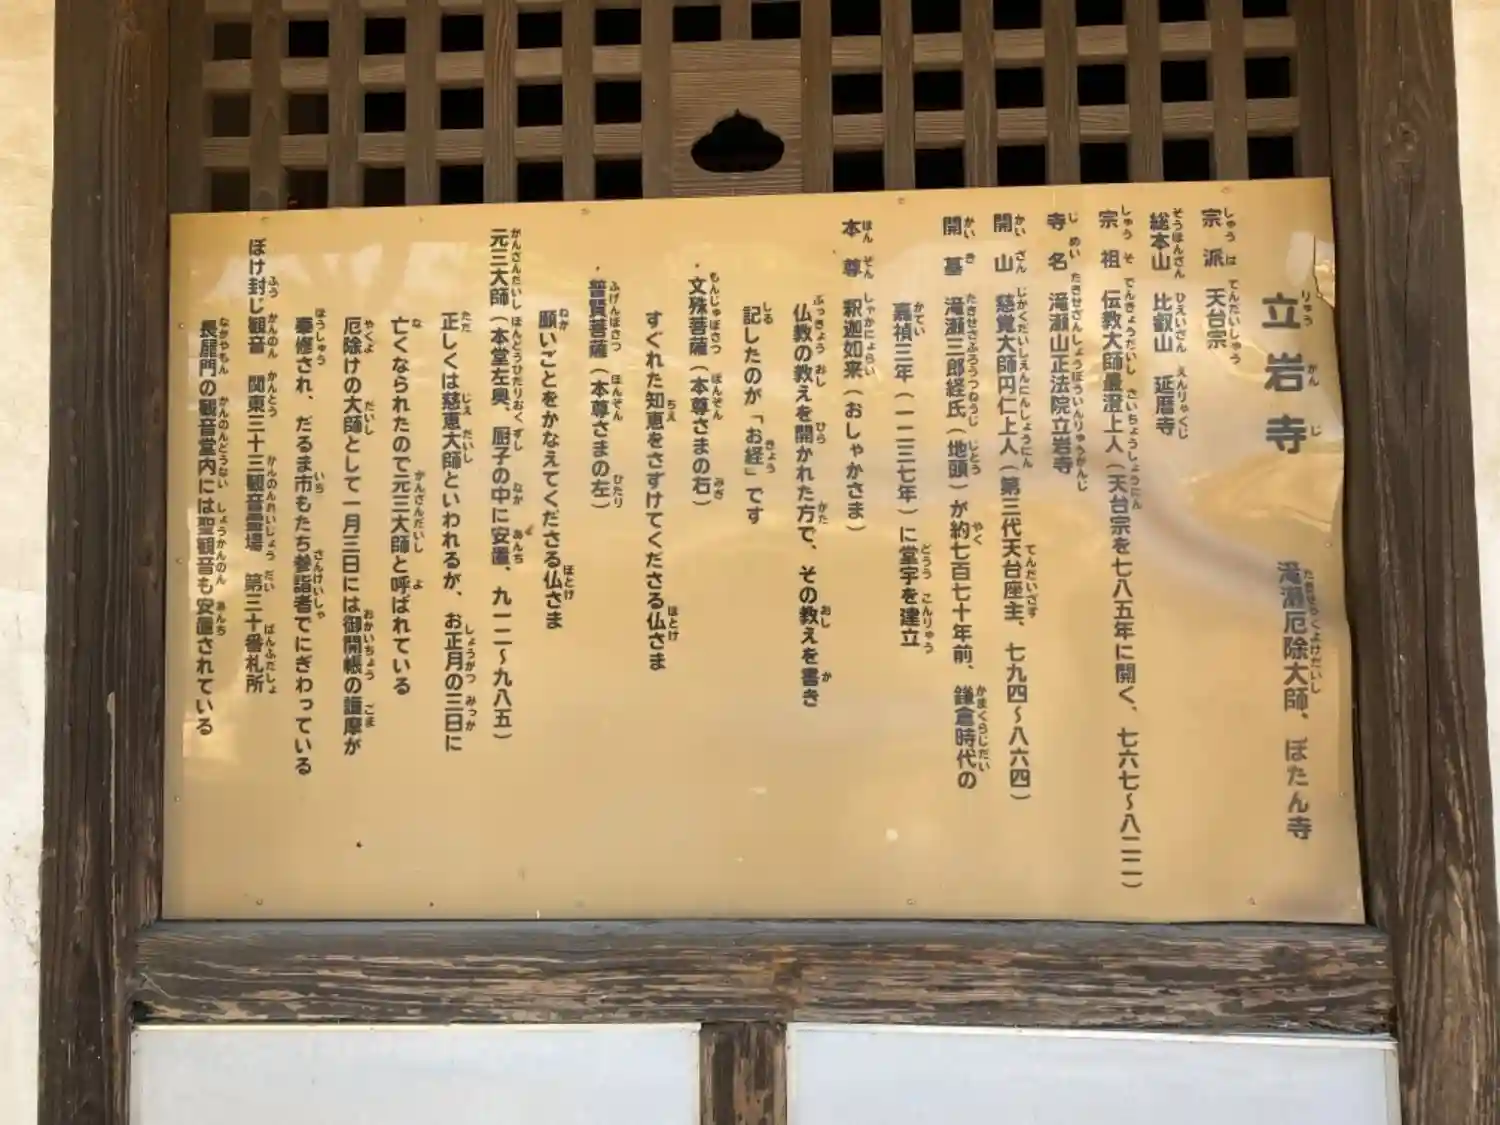 立岩寺 滝瀬厄除大師、ぼたん寺
宗派 天台宗
総本山 比叡山 延暦寺
宗祖 伝教大師最澄上人（天台宗を七八五年に開く、七六七～八二二）
寺名 滝瀬山正法院立岩寺
開山 慈覚大師円仁上人（第三代天台座主、七九四～八六四）
開基 滝瀬三郎経氏（地頭）が約七百七十年前、鎌倉時代の
嘉禎三年（一二三七年）に堂宇を建立
本尊 釈迦如来（おしゃかさま）
仏教の教えを開かれた方で、その教えを書き
記したのが「お経」です
・文殊菩薩（本尊さまの右）
すぐれた知恵をさずけてくださる仏さま
・普賢菩薩（本尊さまの左）
願いごとをかなえてくださる仏さま
元三大師（本堂左奥、厨子の中に安置、九一二～九八五）
正しくは慈恵大師といわれるが、お正月の三日に
亡くなられたので元三大師と呼ばれている
厄除けの大師として一月三日には御開帳の護摩が
奉修され、だるま市もたち参詣者でにぎわっている
ぼけ封じ観音 関東三十三観音霊場 第三十番札所
長屋門の観音堂内には聖観音も安置されている